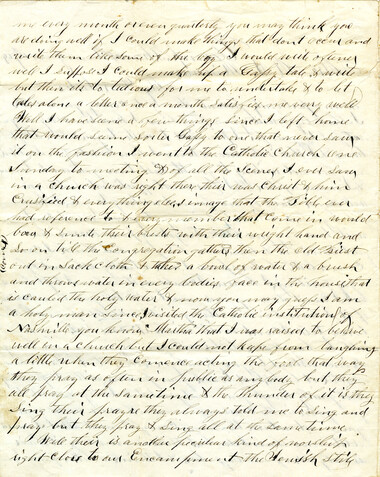 me every month or even quarterly you may think you
are doing well if I could make things that dont occur and
write them like some of the boys I would write oftener
well I suppose I could make up a Gassy tale & write
but then its to tedious for me to undertake & to let
tales alone a letter once a month satisfies me very well
Well I have seen a few things since I left home
that would seem to me that never saw
it on the fashion I went to the Catholic Church one
Sunday to meeting & of all the Scenes I ever saw
in a church was right there their was Christ & him
Crusified & everything else image that the Bible ever
had reference to Every member that come in would
bow & smite their breasts with their right hand and
so on till the Congregation gathers then the old Priest
out in Sack Cloth & takes a bowl of water & a brush
and throws water in every bodies face in the house that
is called the holy water & now you may guess I am
a holy man since I visited the Catholic institution of
Nashville you know Martha that I was raised to behave
well in a church but I could not keep from laughing
a little when they comence acting the fool that way
they pray as often in public as anybody but they
all pray at the same time & the thunder of it is they
Sing their prayrs they always told me to Sing and
pray but they pray & sing all at the same time
Well their is another peculiar kind of worship
right close to our Encampment the Jewish stile